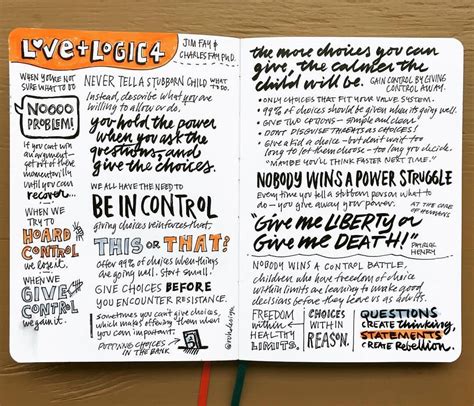 LOVE + LOGIC 4
JIM FAY &
CHARLES FAY PH.D.
WHEN YOU'RE NOT
SURE WHAT TO DO
NOOOO
PROBLEM!
If you can't win
an argument-
get out of there
momentarily
until you can
recover...
WHEN WE
TRY TO
HOARD
CONTROL
we lose it.
WHEN WE
GIVE
CONTROL
we gain it.
NEVER TELL A STUBBORN CHILD WHAT
TO DO.
Instead, describe what you are
willing to allow or do.
you hold the power
when you ask the
questions, and
give the choices.
WE ALL HAVE THE NEED TO
BE IN CONTROL
giving choices reinforces that.
THIS OR THAT?
Offer 99% of choices when things
are going well. Start small.
GIVE CHOICES BEFORE
YOU ENCOUNTER RESISTANCE.
Sometimes you can't give choices,
which makes offering them when
you can important.
PUTTING CHOICES
IN THE BANK
the more choices you can
give, the calmer the
child will be.
GAIN CONTROL BY GIVING
CONTROL AWAY.
• ONLY CHOICES THAT FIT YOUR VALUE SYSTEM.
• 99% of choices should be given when it's going well.
• GIVE TWO OPTIONS - simple and clear!
• DON'T DISGUISE THREATS AS CHOICES!
• Give a kid a choice - but don't wait too
long to let them choose - too long, you decide.
"MAYBE YOU'LL THINK FASTER NEXT TIME."
NOBODY WINS A POWER STRUGGLE
Every time you tell a stubborn person what to
do you give away your power.
AT THE CORE
OF HUMANS
"Give me LIBERTY or
Give me DEATH!"
PATRICK
HENRY
NOBODY WINS A CONTROL BATTLE,
children who have freedom of choice
within limits are learning to make good
decisions before they leave us as adults.
FREEDOM
within
HEALTHY
LIMITS.
CHOICES
WITHIN
REASON.
QUESTIONS
CREATE thinking,
STATEMENTS
CREATE Rebellion.